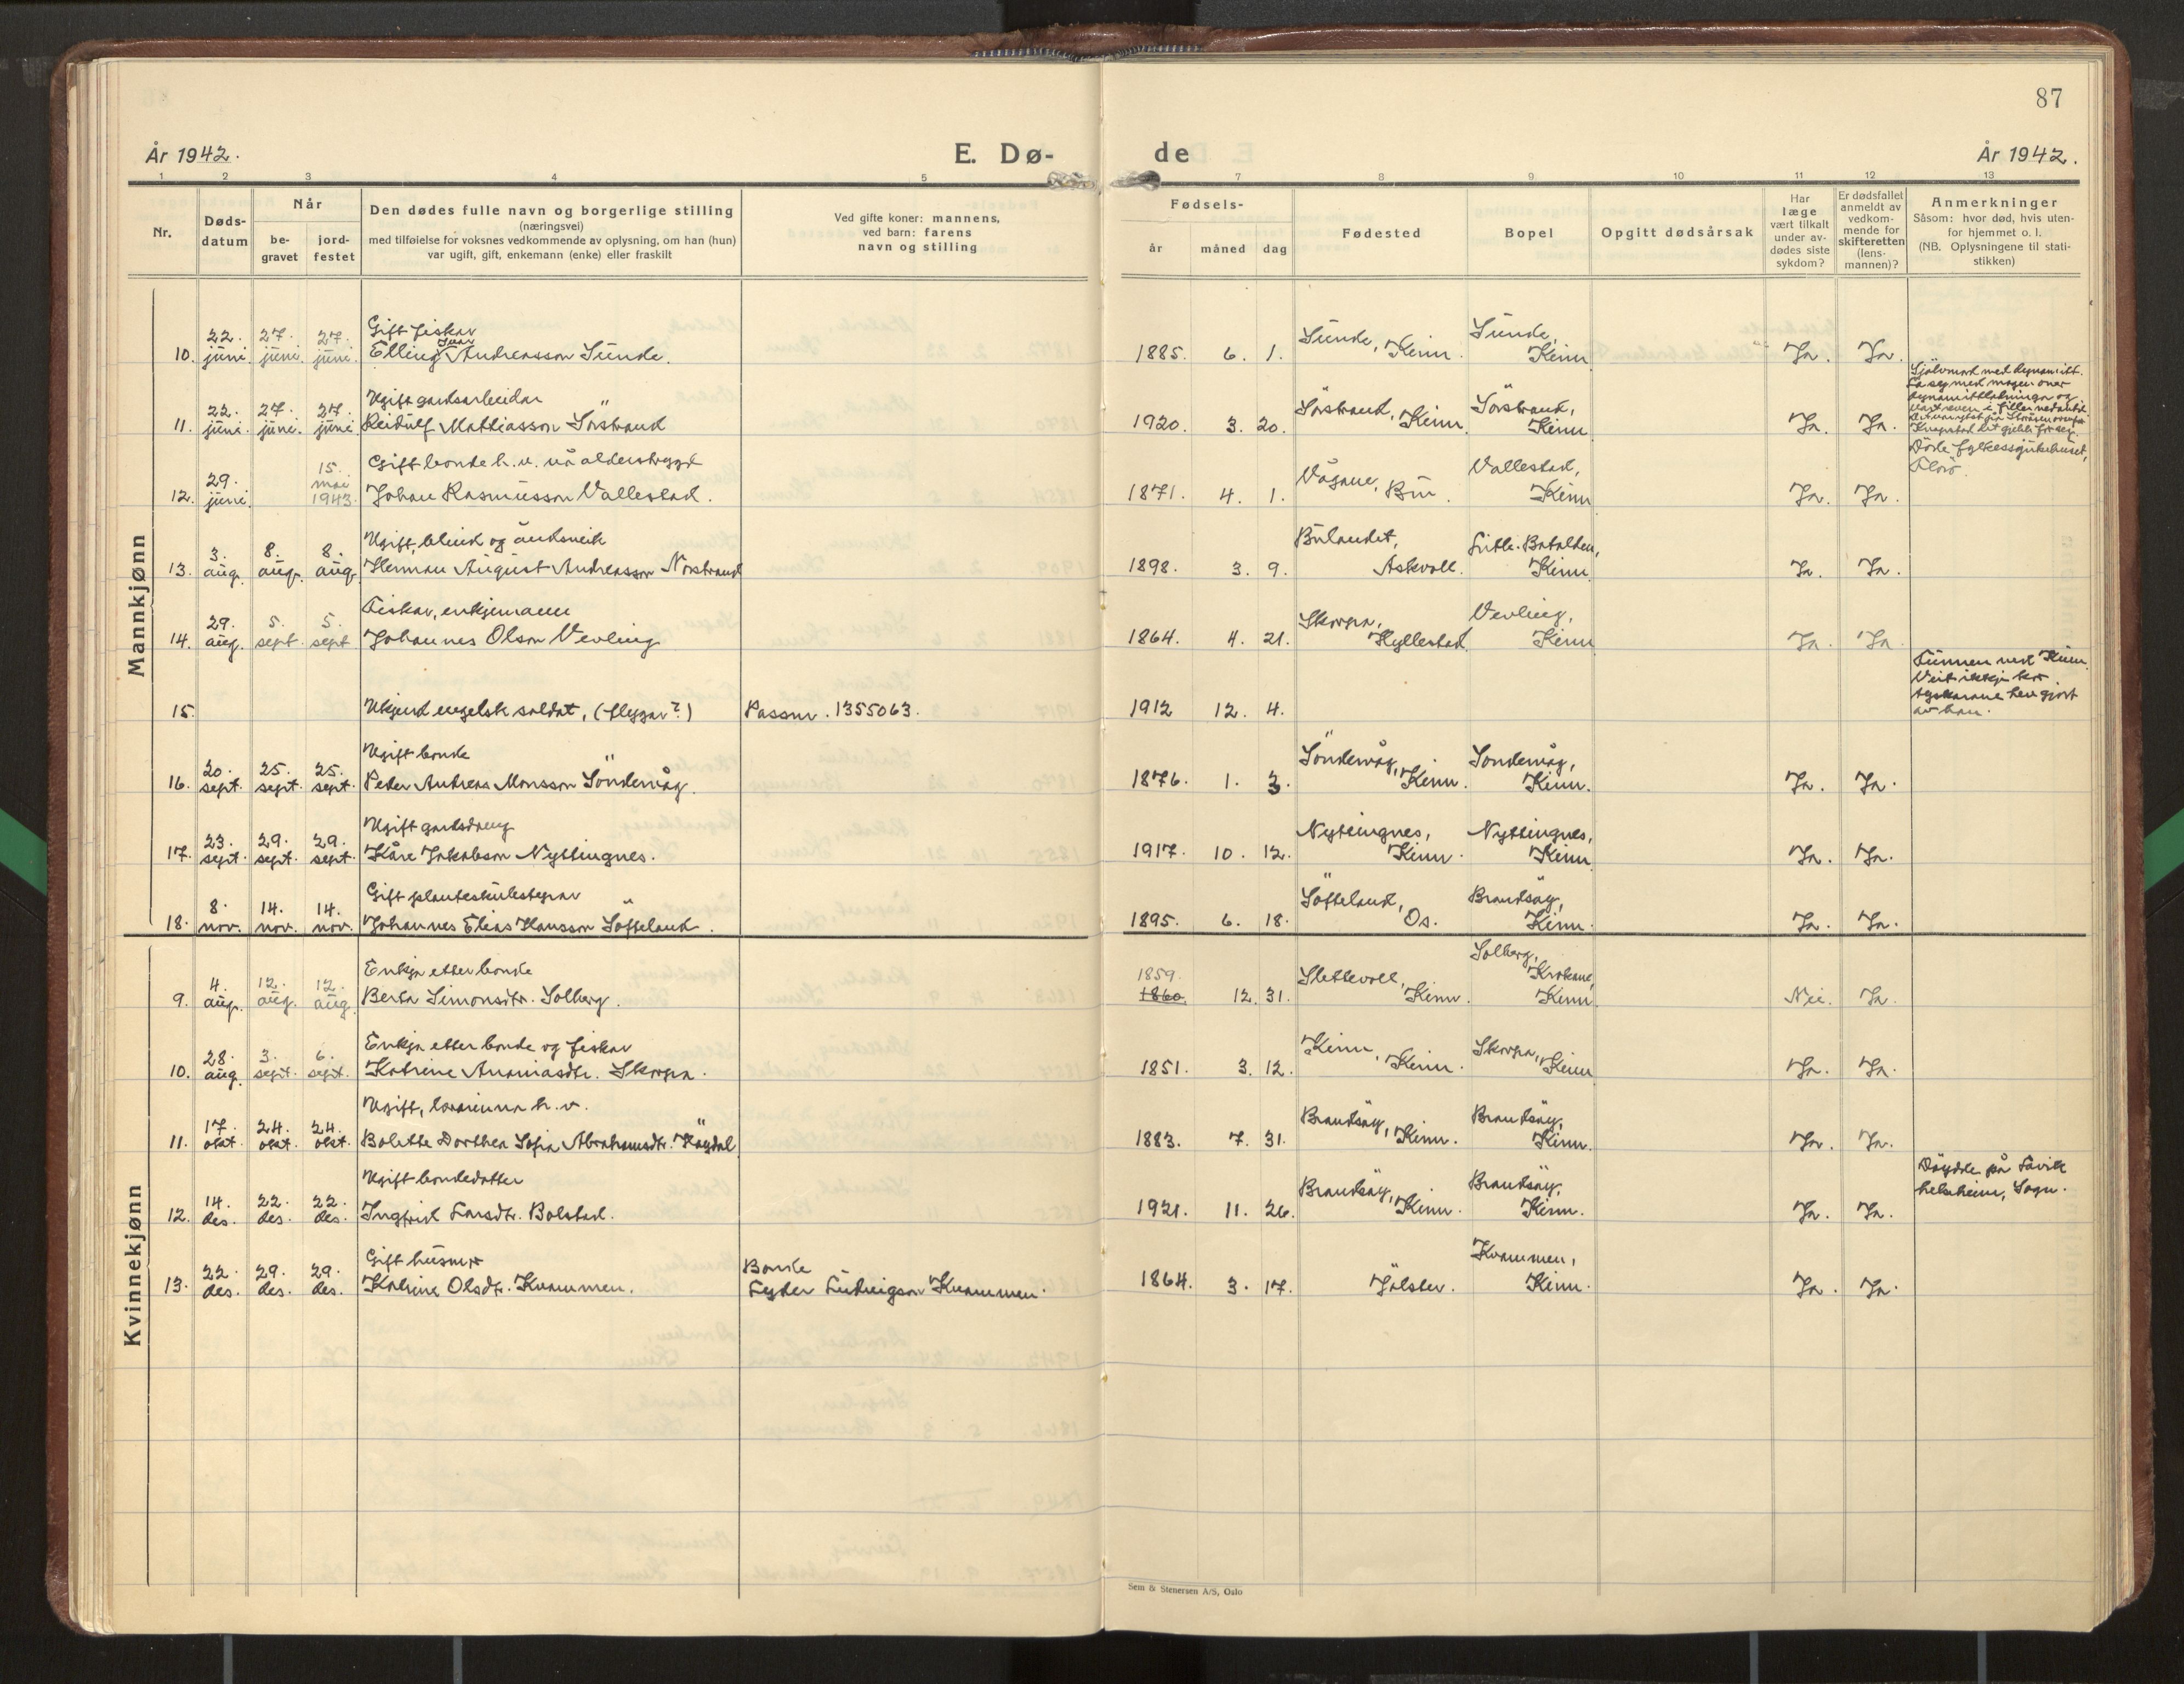 87
År 1942.
E. Dø-
de
År 1942.
1 2 3 4 5 7 8 9 10 11 12 13
Nr.
Døds-
datum
Når
be-
gravet
jord-
festet
Den dødes fulle navn og borgerlige stilling
(næringsvei)
med tilføielse for voksnes vedkommende av oplysning, om han (hun)
var ugift, gift, enkemann (enke) eller fraskilt
Ved gifte koner: mannens,
ved barn: farens
navn og stilling
Fødsels-
år måned dag
Fødested
Bopel
Opgitt dødsårsak
Har
læge
vært tilkalt
under av-
dødes siste
sykdom?
Er dødsfallet
anmeldt av
vedkom-
mende for
skifteretten
(lens-
mannen)?
Anmerkninger
Såsom: hvor død, hvis uten-
for hjemmet o. l.
(NB. Oplysningene til stati-
stikken)
Mannkjønn
22. 27. 27. Gift fiskar Sunde, Sunde,
10. juni. juni. juni. Elling Ivar Andreasson Sunde. 1885. 6. 1. Kinn. Kinn Ja. Ja.
Sjølvmord med dynamitt.
La seg med magen over
dynamittladningen og
22. 27. 27. Ugift gardsarbeidar Sörstrand, Sörstrand,
11. juni. juni. juni. Reidulf Mattiasson Sörstrand 1920. 3. 20. Kinn. Kinn Ja. Ja.
Döde fylkessjukehuset,
Florö.
29. 15. Gift bonde h.v. nå alderstrygd Vågane, Vallestad,
12. juni. mai 1943. Johan Rasmusson Vallestad. 1871. 4. 1. Bru. Kinn Ja. Ja.
3. 8. 8. Ugift, blind og åndsveik Bulandet, Litle-Batalden,
13. aug. aug. aug. Herman August Andreasson Norstrand 1898. 3. 9. Askvoll. Kinn Ja. Ja.
29. 5. 5. Fiskar, enkjemann Skorpa, Vevling,
14. aug. sept. sept. Johannes Olson Vevling 1864. 4. 21. Hyllestad. Kinn Ja. Ja.
15. Ukjend engelsk soldat, (flygar?) Passnr. 1355063. 1912 12. 4.
Funnen ved Kinn.
Veit ikkje kor
tyskarane hev gjort
av han.
20. 25. 25. Ugift bonde Söndevåg, Sondevåg,
16. sept. sept. sept. Peder Andreas Monsson Söndevåg. 1876. 1. 3. Kinn. Kinn. Ja. Ja.
23. 29. 29. Ugift gardsdreng Nyttingnes, Nyttingnes,
17. sept. sept. sept. Kåre Jakobson Nyttingnes. 1917. 10. 12. Kinn. Kinn Ja. Ja.
8. 14. 14. Gift planteskulestyrar Söfteland, Brandsöy,
18. nov. nov. nov. Johannes Elias Hansson Söfteland. 1895. 6. 18. Os. Kinn. Ja. Ja.
Kvinnekjønn
4. 12. 12. Enkja etter bonde 1859. Slettevoll, Solberg, Krokane,
9. aug. aug. aug. Berta Simonsdtr. Solberg. 1860. 12. 31. Kinn. Kinn Nei. Ja.
28. 3. 6. Enkja etter bonde og fiskar Kinn, Skorpa,
10. aug. sept. sept. Katrine Ananiasdtr. Skorpa. 1851. 3. 12. Kinn. Kinn Ja. Ja.
17. 24. 24. Ugift, h.v. Brandsöy, Brandsöy,
11. okt. okt. okt. Bolette Dorthea Sofia Abrahamsdtr. Högdal 1883. 7. 31. Kinn. Kinn. Ja. Ja.
14. 22. 22. Ugift bondedotter Brandsöy, Brandsöy,
12. des. des. des. Ingfrid Larsdtr. Bolstad. 1921. 11. 26. Kinn. Kinn. Ja. Ja.
Döydde på Lavik
helseheim, Sogn.
22. 29. 29. Gift husmor Bonde Kvammen,
13. des. des. des. Katrine Olsdtr. Kvammen. Lyder Ludvigson Kvammen. 1864. 3. 17. Jölster. Kinn. Ja. Ja.
Sem & Stenersen A/S, Oslo